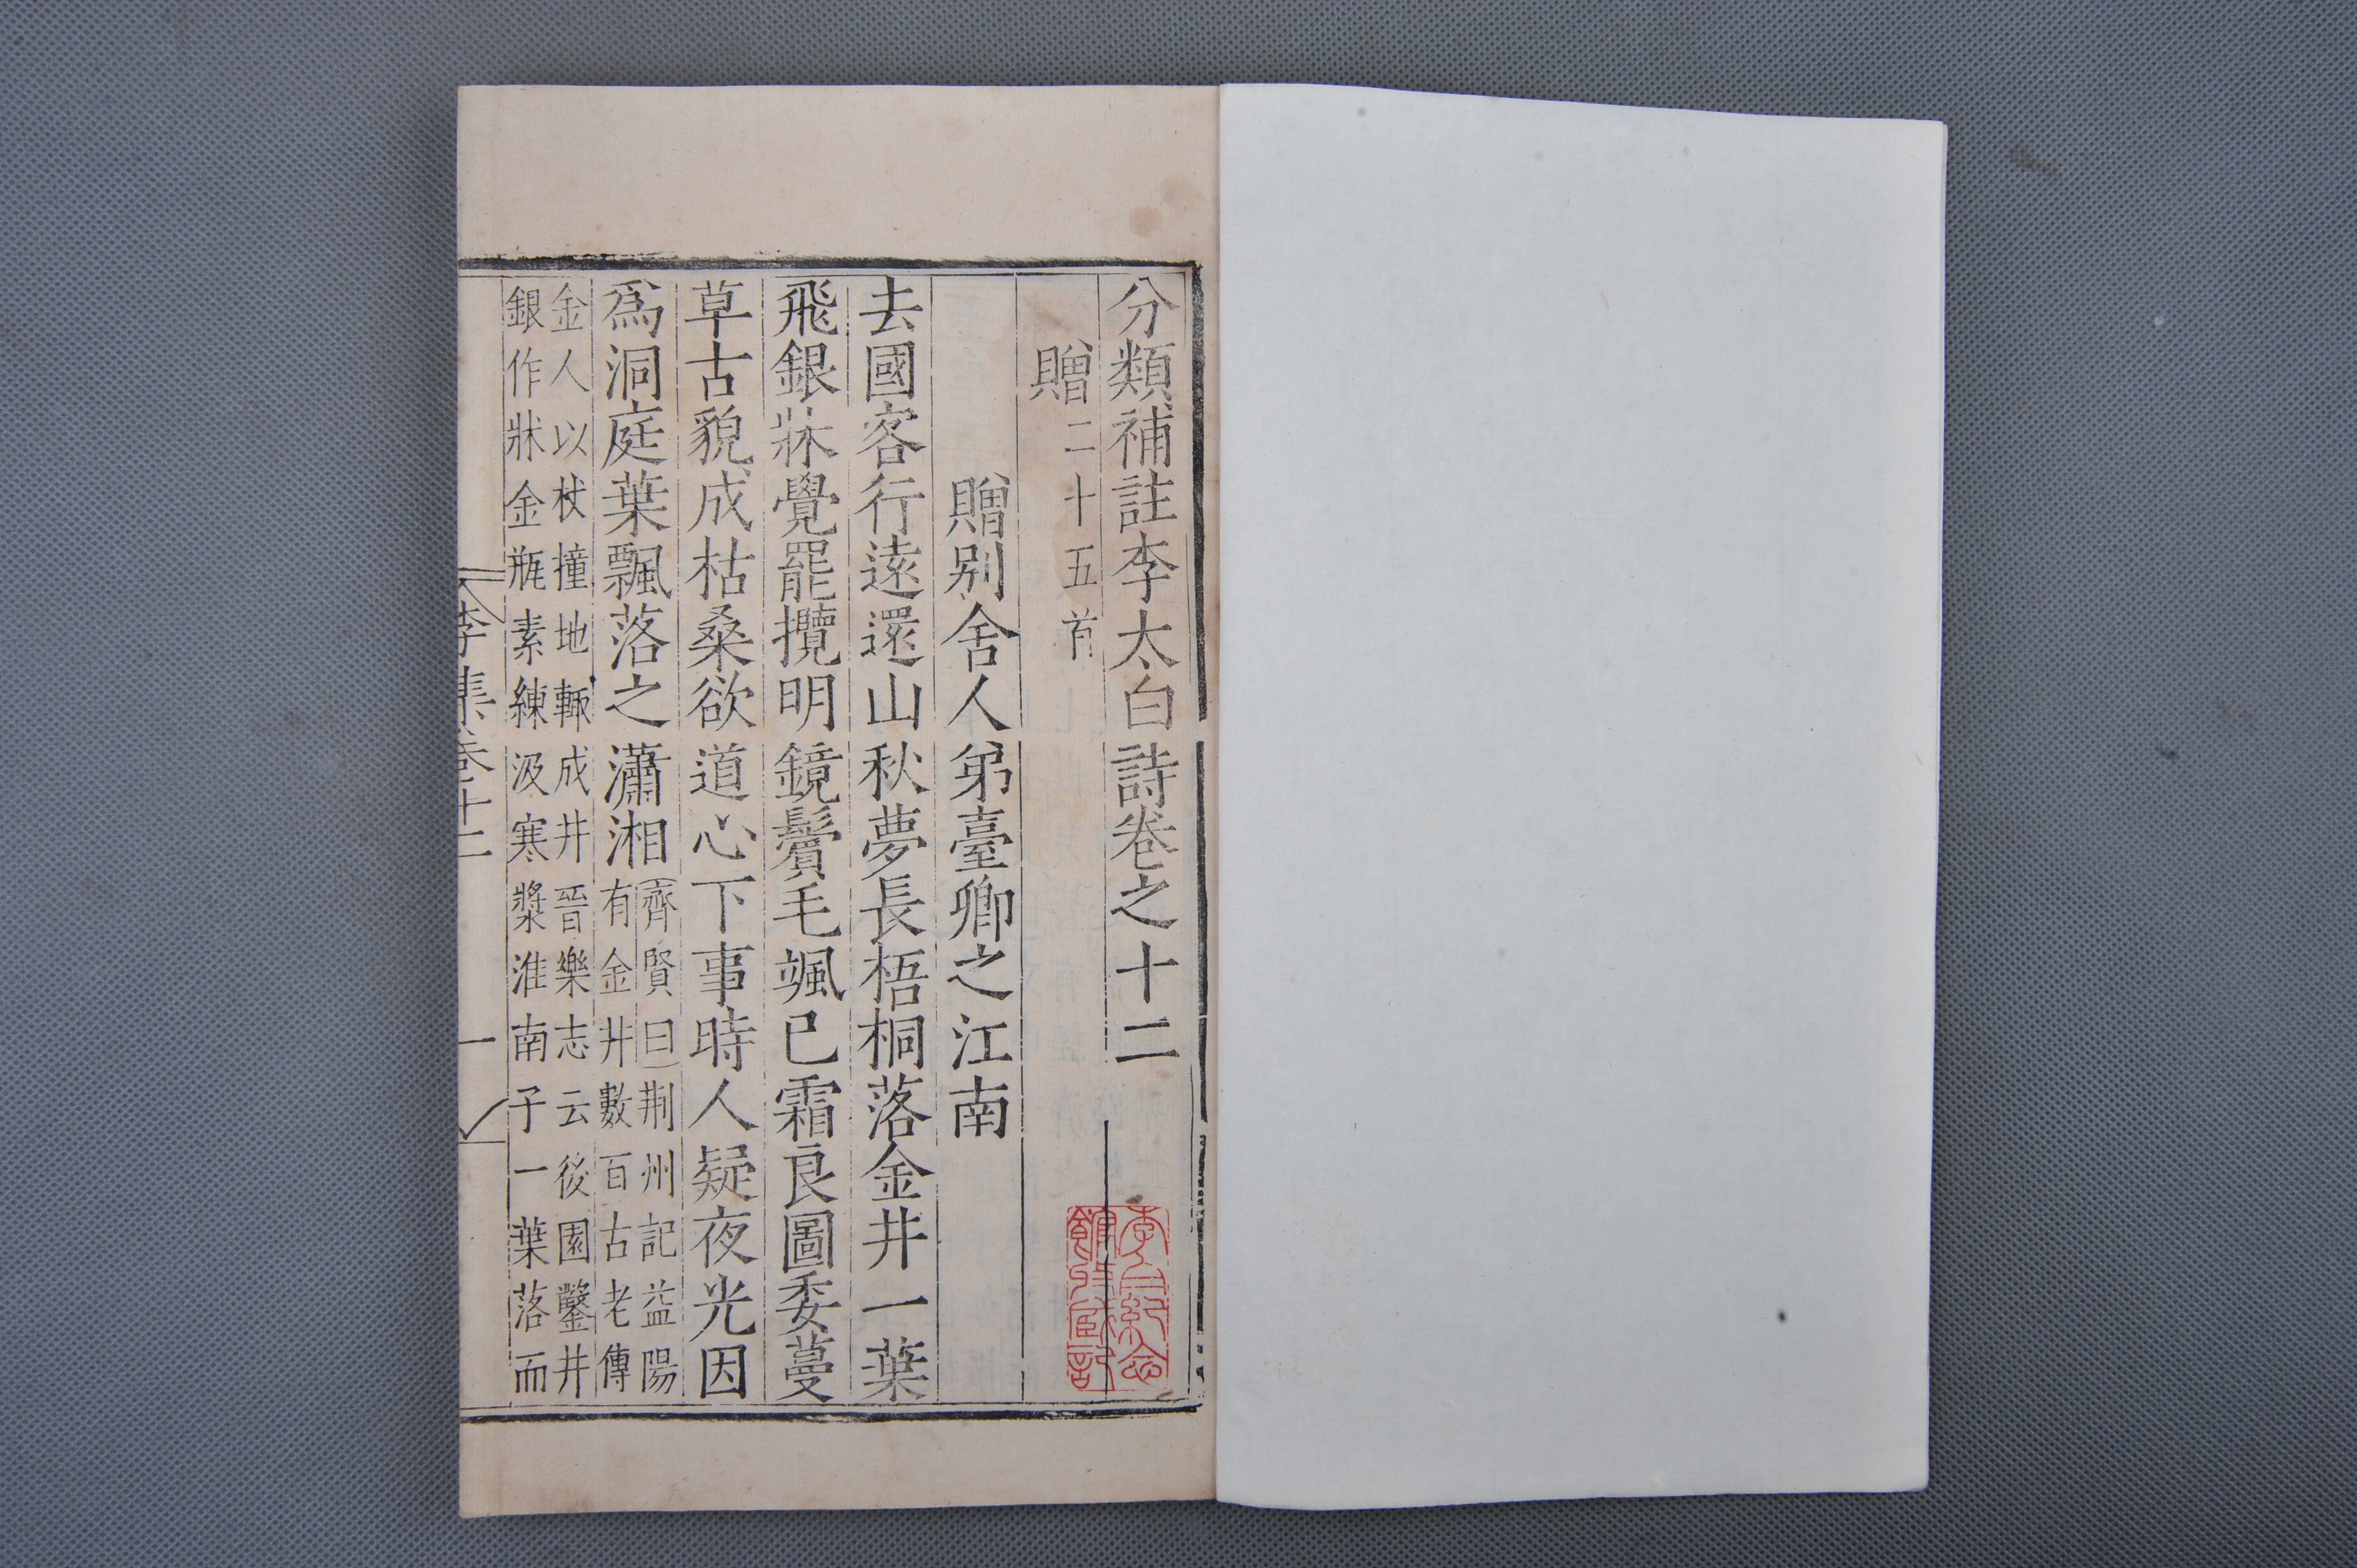 分類補註李太白詩卷之十二
贈二十五首
贈別舍人弟臺卿之江南
去國客行遠還山秋夢長梧桐落金井一葉
飛銀牀覺罷攬明鏡鬢毛颯已霜良圖委蔓
草古貌成枯桑欲道心下事時人疑夜光因
爲洞庭葉飄落之瀟湘
齊賢曰荆州記益陽
有金井數百古老傳
金人以杖撞地輙成井晉樂志云後園鑿井
銀作牀金瓶素練汲寒漿淮南子一葉落而
李集卷十二
一
李白紀念
館所藏記